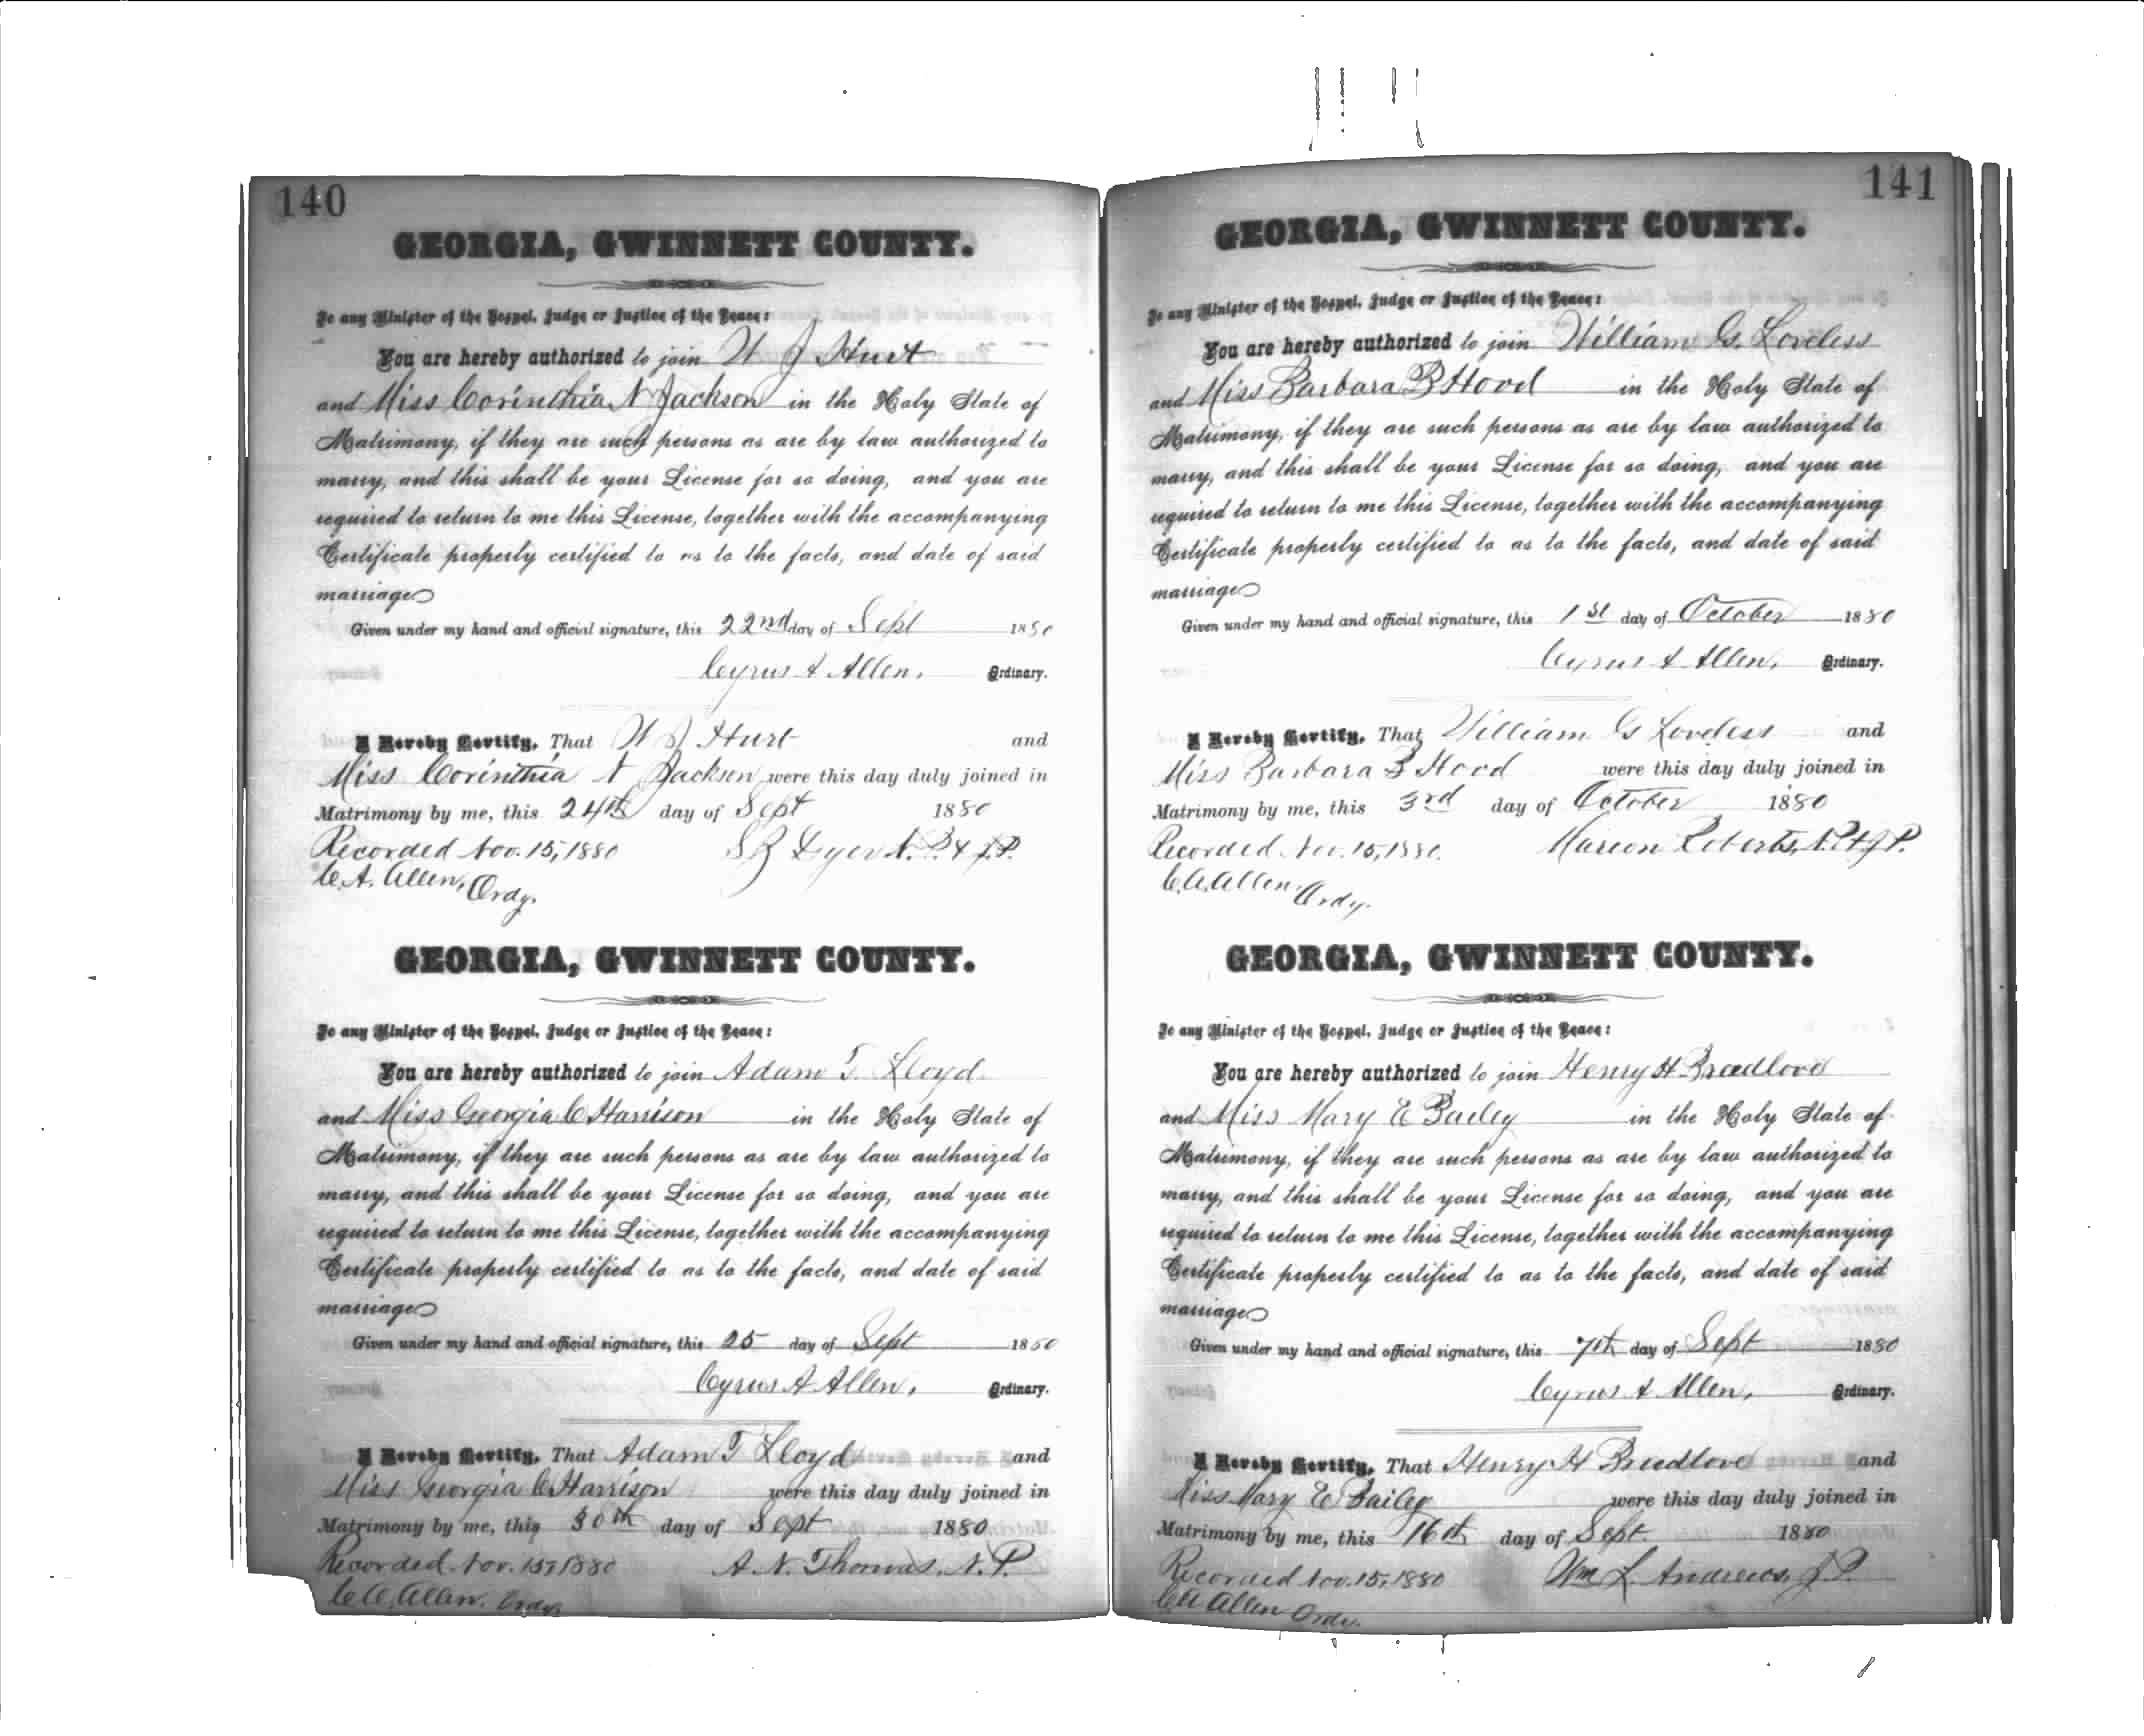 140
GEORGIA, GWINNETT COUNTY.
To any Minister of the Gospel, Judge or Justice of the Peace:
You are hereby authorized to join W J Hurt
and Miss Corinthia N Jackson in the Holy State of
Matrimony, if they are such persons as are by law authorized to
marry, and this shall be your License for so doing, and you are
required to return to me this License, together with the accompanying
Certificate properly certified to as to the facts, and date of said
marriage
Given under my hand and official signature, this 22nd day of Sept 1880
Cyrus A Allen, Ordinary.
I Hereby Certify, That W J Hurt and
Miss Corinthia N Jackson were this day duly joined in
Matrimony by me, this 24th day of Sept 1880
Recorded Nov. 15, 1880 S B Dyer N. P. & J. P.
C. A. Allen, Ordy.
GEORGIA, GWINNETT COUNTY.
To any Minister of the Gospel, Judge or Justice of the Peace:
You are hereby authorized to join Adam T. Lloyd
and Miss Georgia C Harrison in the Holy State of
Matrimony, if they are such persons as are by law authorized to
marry, and this shall be your License for so doing, and you are
required to return to me this License, together with the accompanying
Certificate properly certified to as to the facts, and date of said
marriage
Given under my hand and official signature, this 25 day of Sept 1880
Cyrus A Allen, Ordinary.
I Hereby Certify, That Adam T Lloyd and
Miss Georgia C Harrison were this day duly joined in
Matrimony by me, this 30th day of Sept 1880
Recorded Nov. 15, 1880 A. N. Thomas, N. P.
C. A. Allen, Ordy.
141
GEORGIA, GWINNETT COUNTY.
To any Minister of the Gospel, Judge or Justice of the Peace:
You are hereby authorized to join William G. Loveless
and Miss Barbara B Hood in the Holy State of
Matrimony, if they are such persons as are by law authorized to
marry, and this shall be your License for so doing, and you are
required to return to me this License, together with the accompanying
Certificate properly certified to as to the facts, and date of said
marriage
Given under my hand and official signature, this 1st day of October 1880
Cyrus A Allen, Ordinary.
I Hereby Certify, That William G Loveless and
Miss Barbara B Hood were this day duly joined in
Matrimony by me, this 3rd day of October 1880
Recorded Nov. 15, 1880. Marion Roberts, N. P. & J P.
C. A. Allen, Ordy.
GEORGIA, GWINNETT COUNTY.
To any Minister of the Gospel, Judge or Justice of the Peace:
You are hereby authorized to join Henry H Breedlove
and Miss Mary E Bailey in the Holy State of
Matrimony, if they are such persons as are by law authorized to
marry, and this shall be your License for so doing, and you are
required to return to me this License, together with the accompanying
Certificate properly certified to as to the facts, and date of said
marriage
Given under my hand and official signature, this 7th day of Sept 1880
Cyrus A Allen, Ordinary.
I Hereby Certify, That Henry H Breedlove and
Miss Mary E Bailey were this day duly joined in
Matrimony by me, this 16th day of Sept. 1880
Recorded Nov. 15, 1880 Wm L. Andrews, J. P.
C A Allen Ordy.